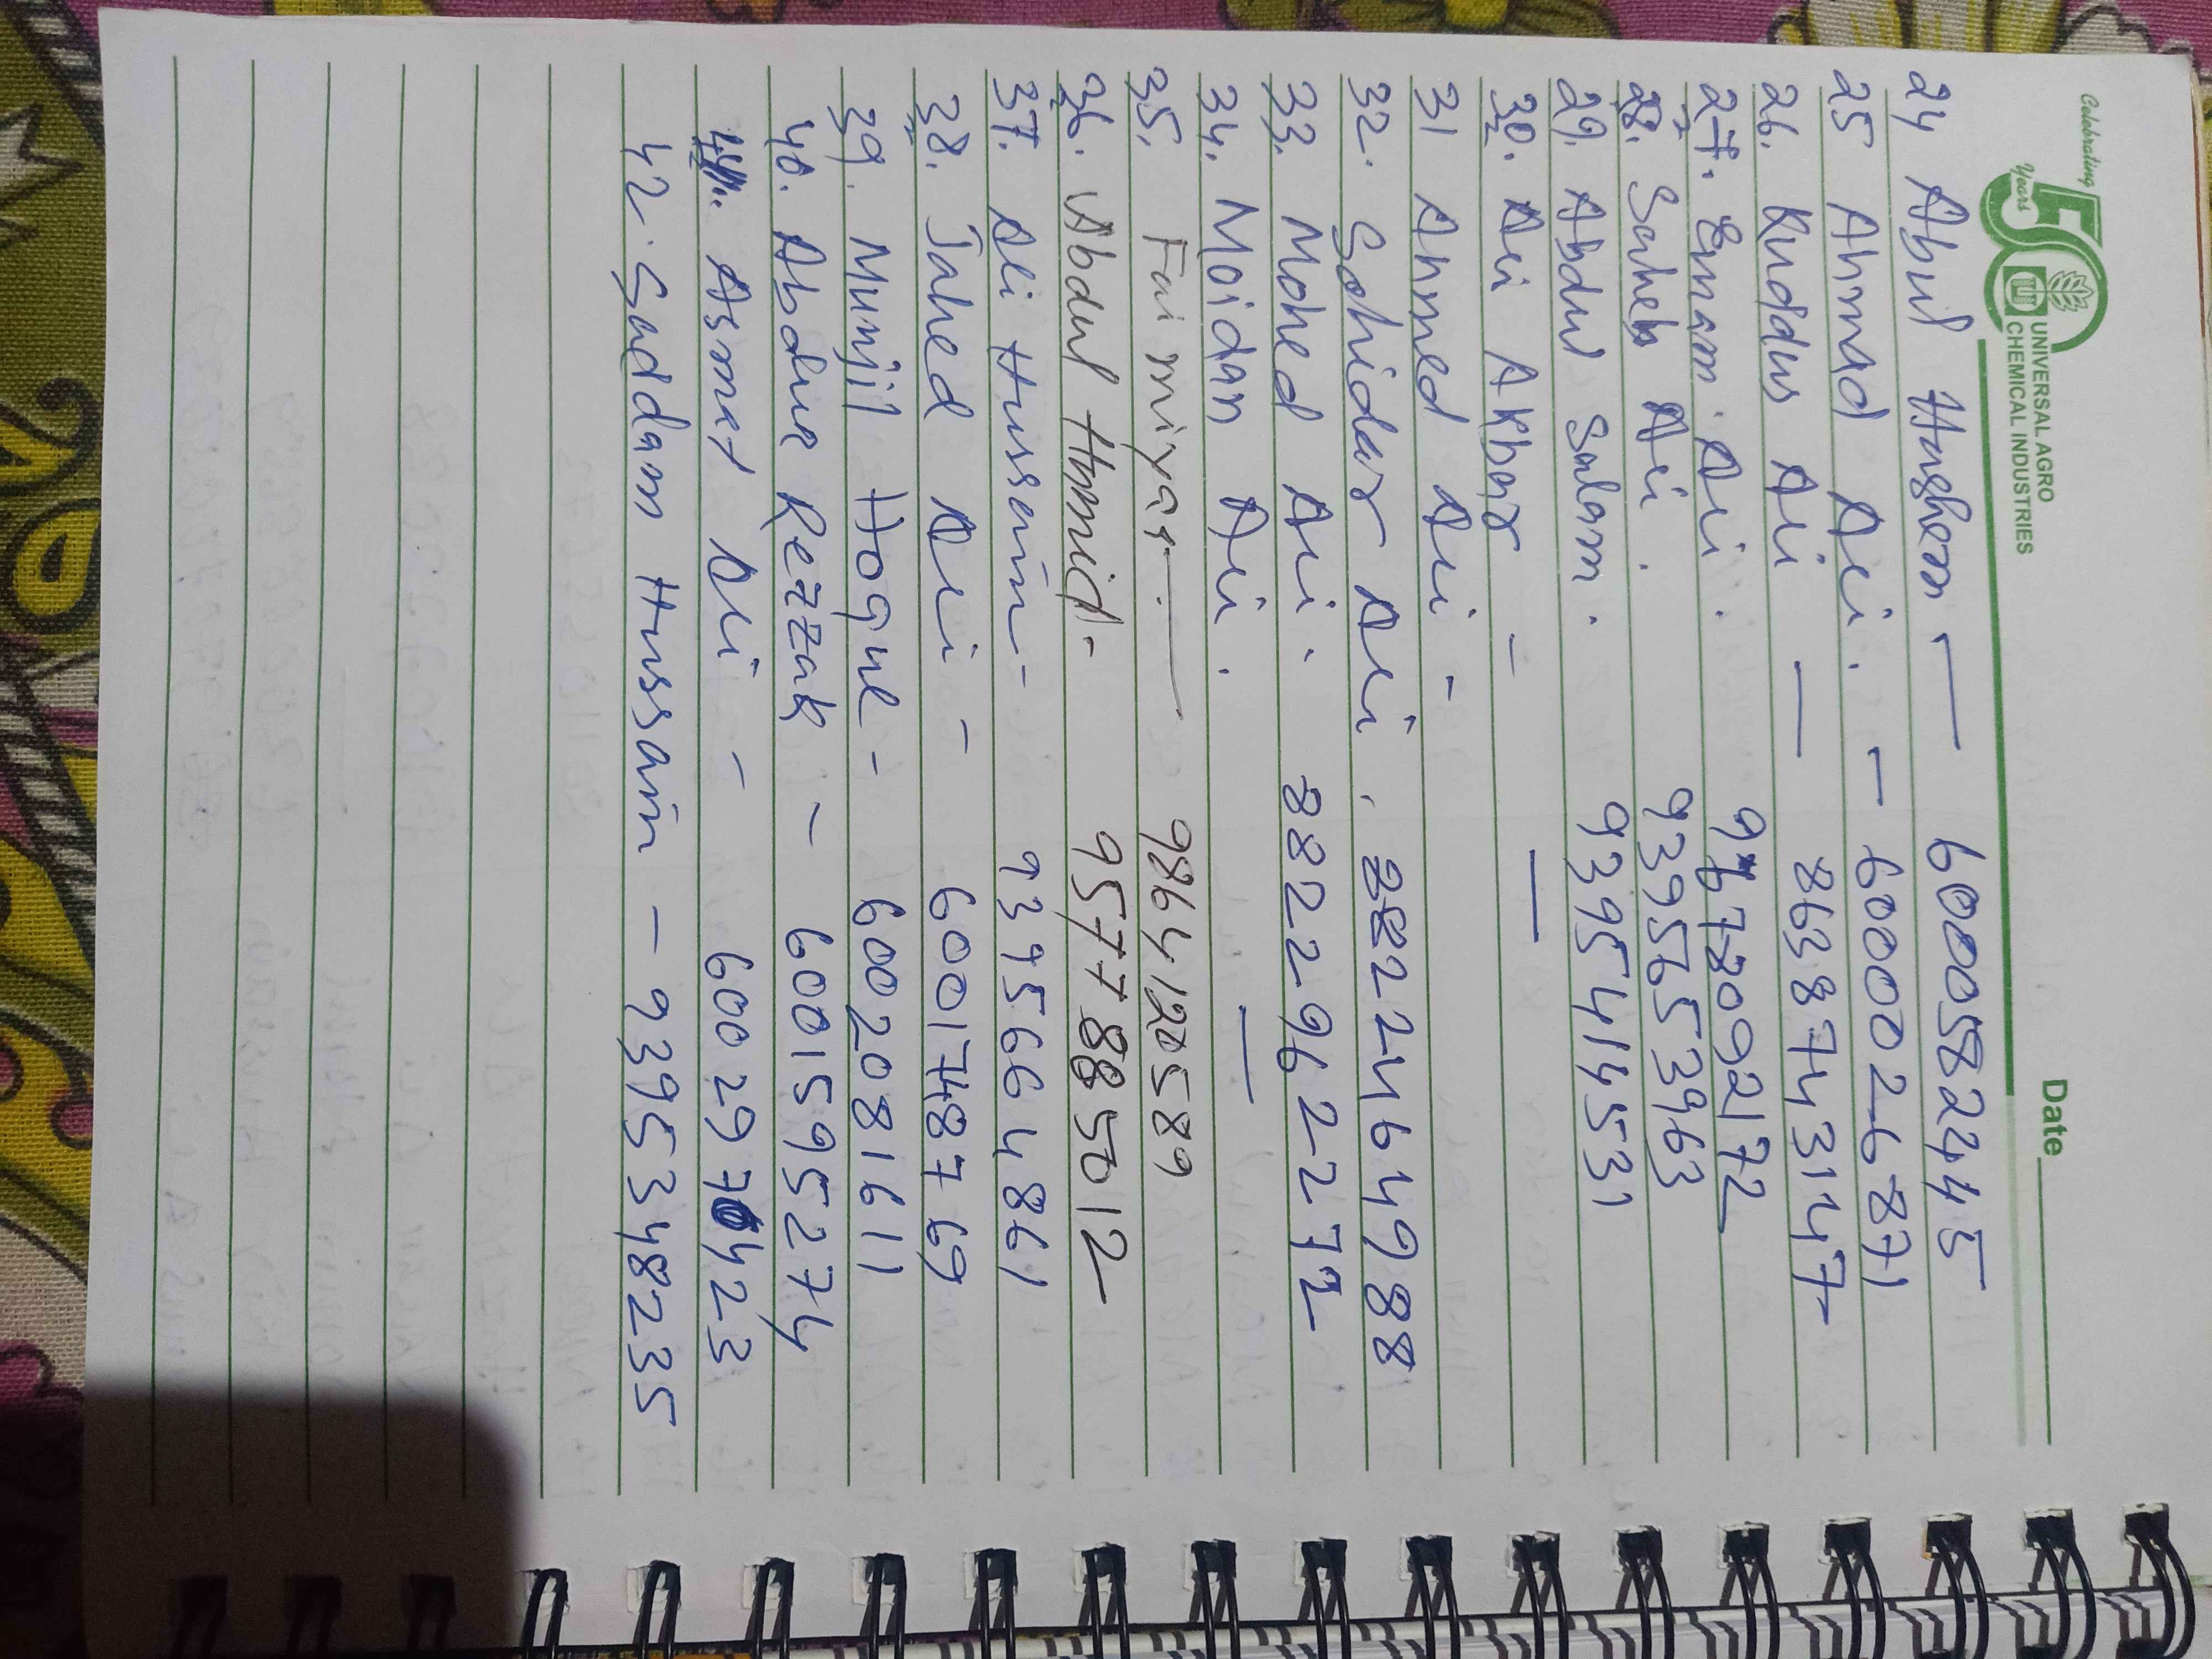 Celebrating
50
Years
UNIVERSAL AGRO
CHEMICAL INDUSTRIES
Date
24 Abul Hashem — 6000582445
25 Ahmad Ali. — 6000026871
26. Kuddus Ali — 8638743147
27. Emam Ali. 9673092172
28. Saheb Ali. 9395653963
29. Abdul Salam. 9395414531
30. Ali Akbar = —
31 Ahmed Ali -
32. Sohidar Ali. 8822464988
33. Mohed Ali. 8822962272
34. Moidan Ali. —
35. Fai miya — 9864120589
36. Abdul Hamid - 9577885012
37. Ali Hussain - 9395664861
38. Jahed Ali - 6001748769
39. Munjil Hoque - 6002081611
40. Abdur Rezzak - 6001595274
41. Asmat Ali - 6002970423
42. Saddam Hussain - 9395348235